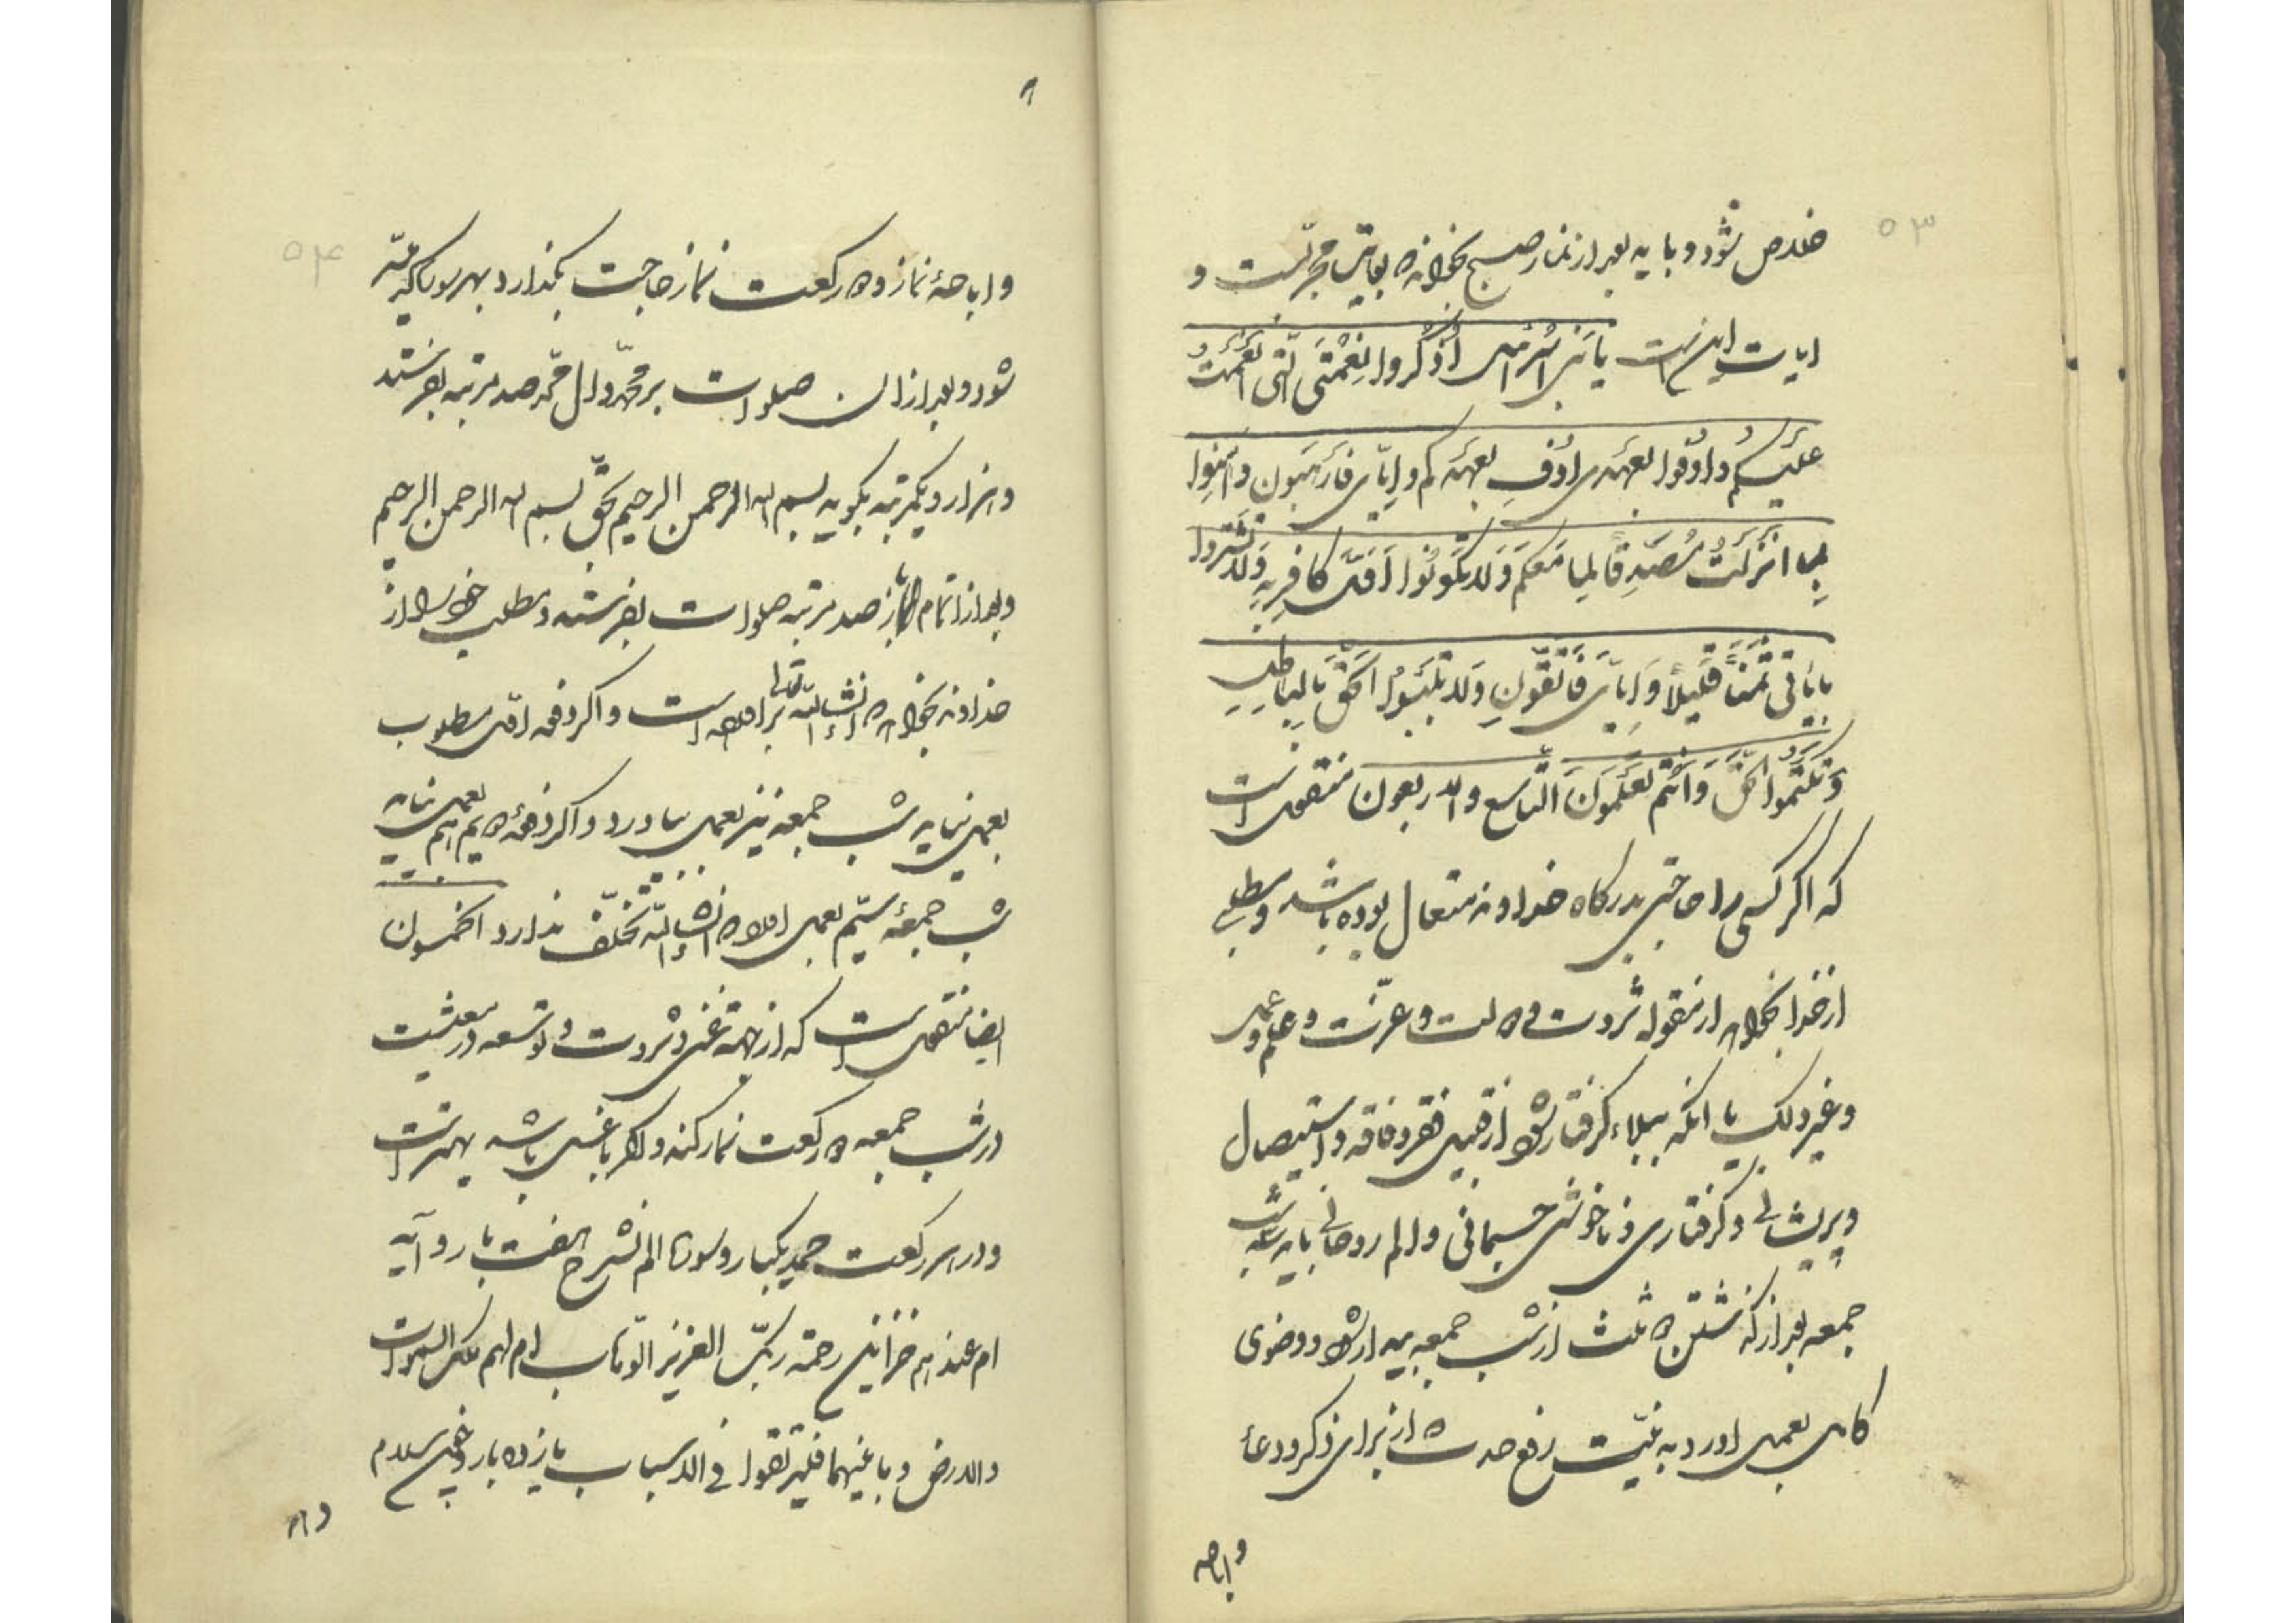 ۵۳
خلاص شود و باید بعد از نماز صبح بخواند بغایت مجربست و
ایات اینست یا بنی اسرائیل اذکروا نعمتی التی انعمت
علیکم واوفوا بعهدی اوف بعهدکم وایای فارهبون وامنوا
بما انزلت مصدقا لما معکم ولا تکونوا اول کافر به ولا تشتروا
بایاتی ثمنا قلیلا وایای فاتقون ولا تلبسوا الحق بالباطل
وتکتموا الحق وانتم تعلمون التاسع والاربعون منقولست
که اگر کسی را حاجتی بدرگاه خداوند متعال بوده باشد و مطلبی
از خدا بخواهد از مقوله ثروت و دولت و عزت و علم و عمل
و غیر ذلک یا انکه ببلاء گرفتار شود از قبیل فقر و فاقه و استیصال
و پریشانی و گرفتاری و ناخوشی جسمانی و الم روحانی باید شب
جمعه بعد از گذشتن دو ثلث از شب جمعه بیدار شود و وضوی
کامل بعمل اورد به نیت رفع حدث از برای ذکر و دعا
و اباحه
۵۴
و اباحهٔ نماز و دو رکعت نماز حاجت بگذارد بهر سوره که میسر
شود و بعد از ان صلوات بر محمد و ال محمد صد مرتبه بفرستد
و هزار و یکمرتبه بگوید بسم الله الرحمن الرحیم بحق بسم الله الرحمن الرحیم
و بعد از اتمام باز صد مرتبه صلوات بفرستد و مطلب خود را از
خداوند بخواهد که انشاءالله تعالی براورده است و اگر دفعه اول مطلوب
بعمل نیاید شب جمعه نیز بعمل بیاورد و اگر دفعهٔ دویم هم بعمل نیاید
شب جمعهٔ سیم بعمل اورد که انشاءالله تخلف ندارد الخمسون
ایضا منقولست که از جهة غنی و ثروت و توسعه در معیشت
در شب جمعه دو رکعت نماز کند و اگر با غسل باشد بهتر است
و در هر رکعت حمد یکبار و سوره الم نشرح هفت بار و آیه
ام عندهم خزاین رحمة ربک العزیز الوهاب ام لهم ملک السموات
والارض وما بینهما فلیرتقوا فی الاسباب یازده بار و چون سلام